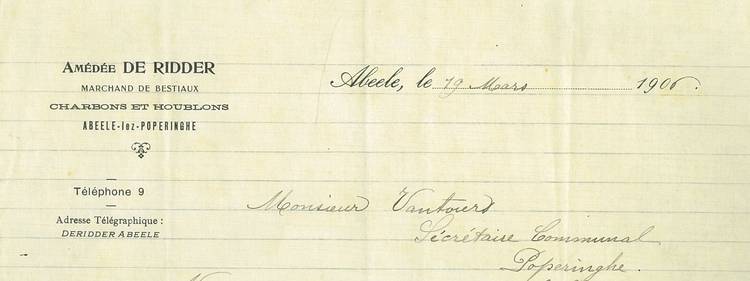 Amédée DE RIDDER
MARCHAND DE BESTIAUX
CHARBONS ET HOUBLONS
ABEELE-lez-POPERINGHE
Téléphone 9
Adresse Télégraphique :
DERIDDER ABEELE
Abeele, le 19 Mars 1906.
Monsieur Vantours
Sécrétaire Communal
Poperinghe.